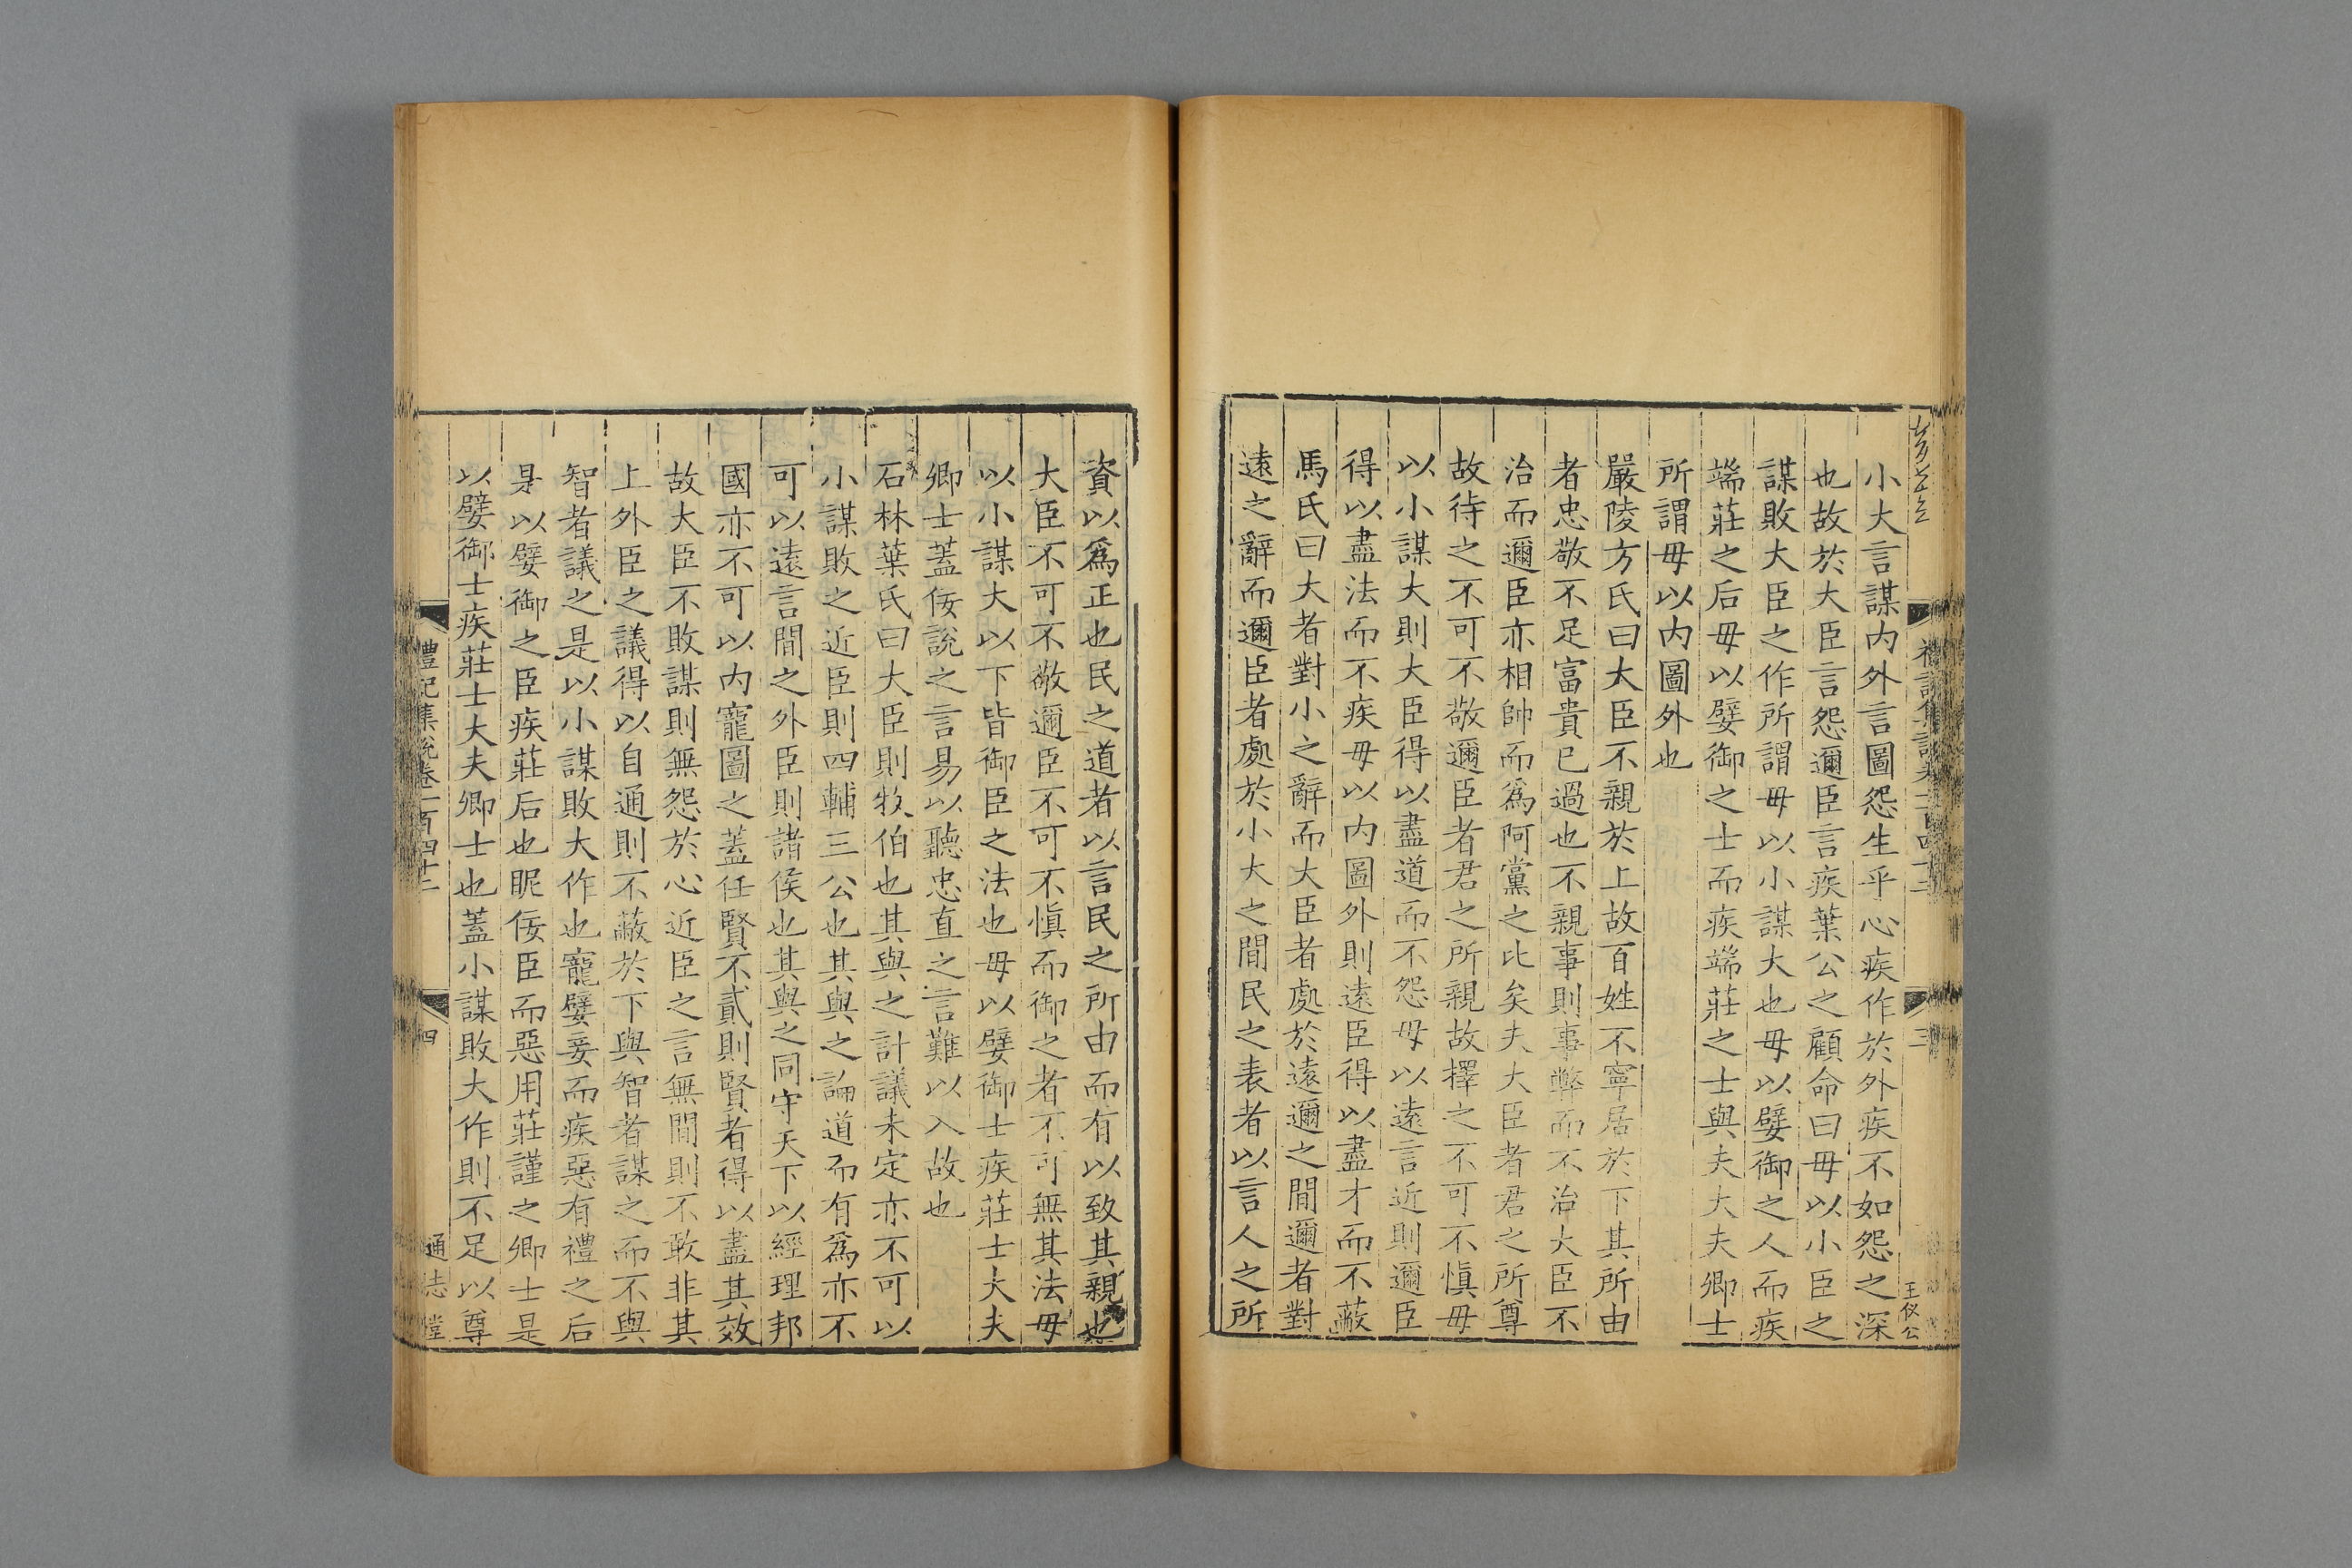 小大言謀内外言圖怨生乎心疾作於外疾不如怨之深
也故於大臣言怨邇臣言疾葉公之顧命曰毋以小臣之
謀敗大臣之作所謂毋以小謀大也毋以嬖御之人而疾
端莊之后毋以嬖御之士而疾端莊之士與夫大夫卿士
所謂毋以内圖外也
嚴陵方氏曰大臣不親於上故百姓不寧居於下其所由
者忠敬不足富貴已過也不親事則事弊而不治大臣不
治而邇臣亦相帥而爲阿黨之比矣夫大臣者君之所尊
故待之不可不敬邇臣者君之所親故擇之不可不慎毋
以小謀大則大臣得以盡道而不怨毋以遠言近則邇臣
得以盡法而不疾毋以内圖外則遠臣得以盡才而不蔽
馬氏曰大者對小之辭而大臣者處於遠邇之間邇者對
遠之辭而邇臣者處於小大之間民之表者以言人之所
王仪公
三
資以爲正也民之道者以言民之所由而有以致其親也
大臣不可不敬邇臣不可不慎而御之者不可無其法毋
以小謀大以下皆御臣之法也毋以嬖御士疾莊士大夫
卿士蓋佞說之言易以聽忠直之言難以入故也
石林葉氏曰大臣則牧伯也其與之計議未定亦不可以
小謀敗之近臣則四輔三公也其與之論道而有爲亦不
可以遠言間之外臣則諸侯也其與之同守天下以經理邦
國亦不可以内寵圖之蓋任賢不貳則賢者得以盡其效
故大臣不敗謀則無怨於心近臣之言無間則不敢非其
上外臣之議得以自通則不蔽於下與智者謀之而不與
智者議之是以小謀敗大作也寵嬖妾而疾惡有禮之后
是以嬖御之臣疾莊后也昵佞臣而惡用莊謹之卿士是
以嬖御士疾莊士大夫卿士也蓋小謀敗大作則不足以尊
禮記集說卷一百四十二
四
通志堂